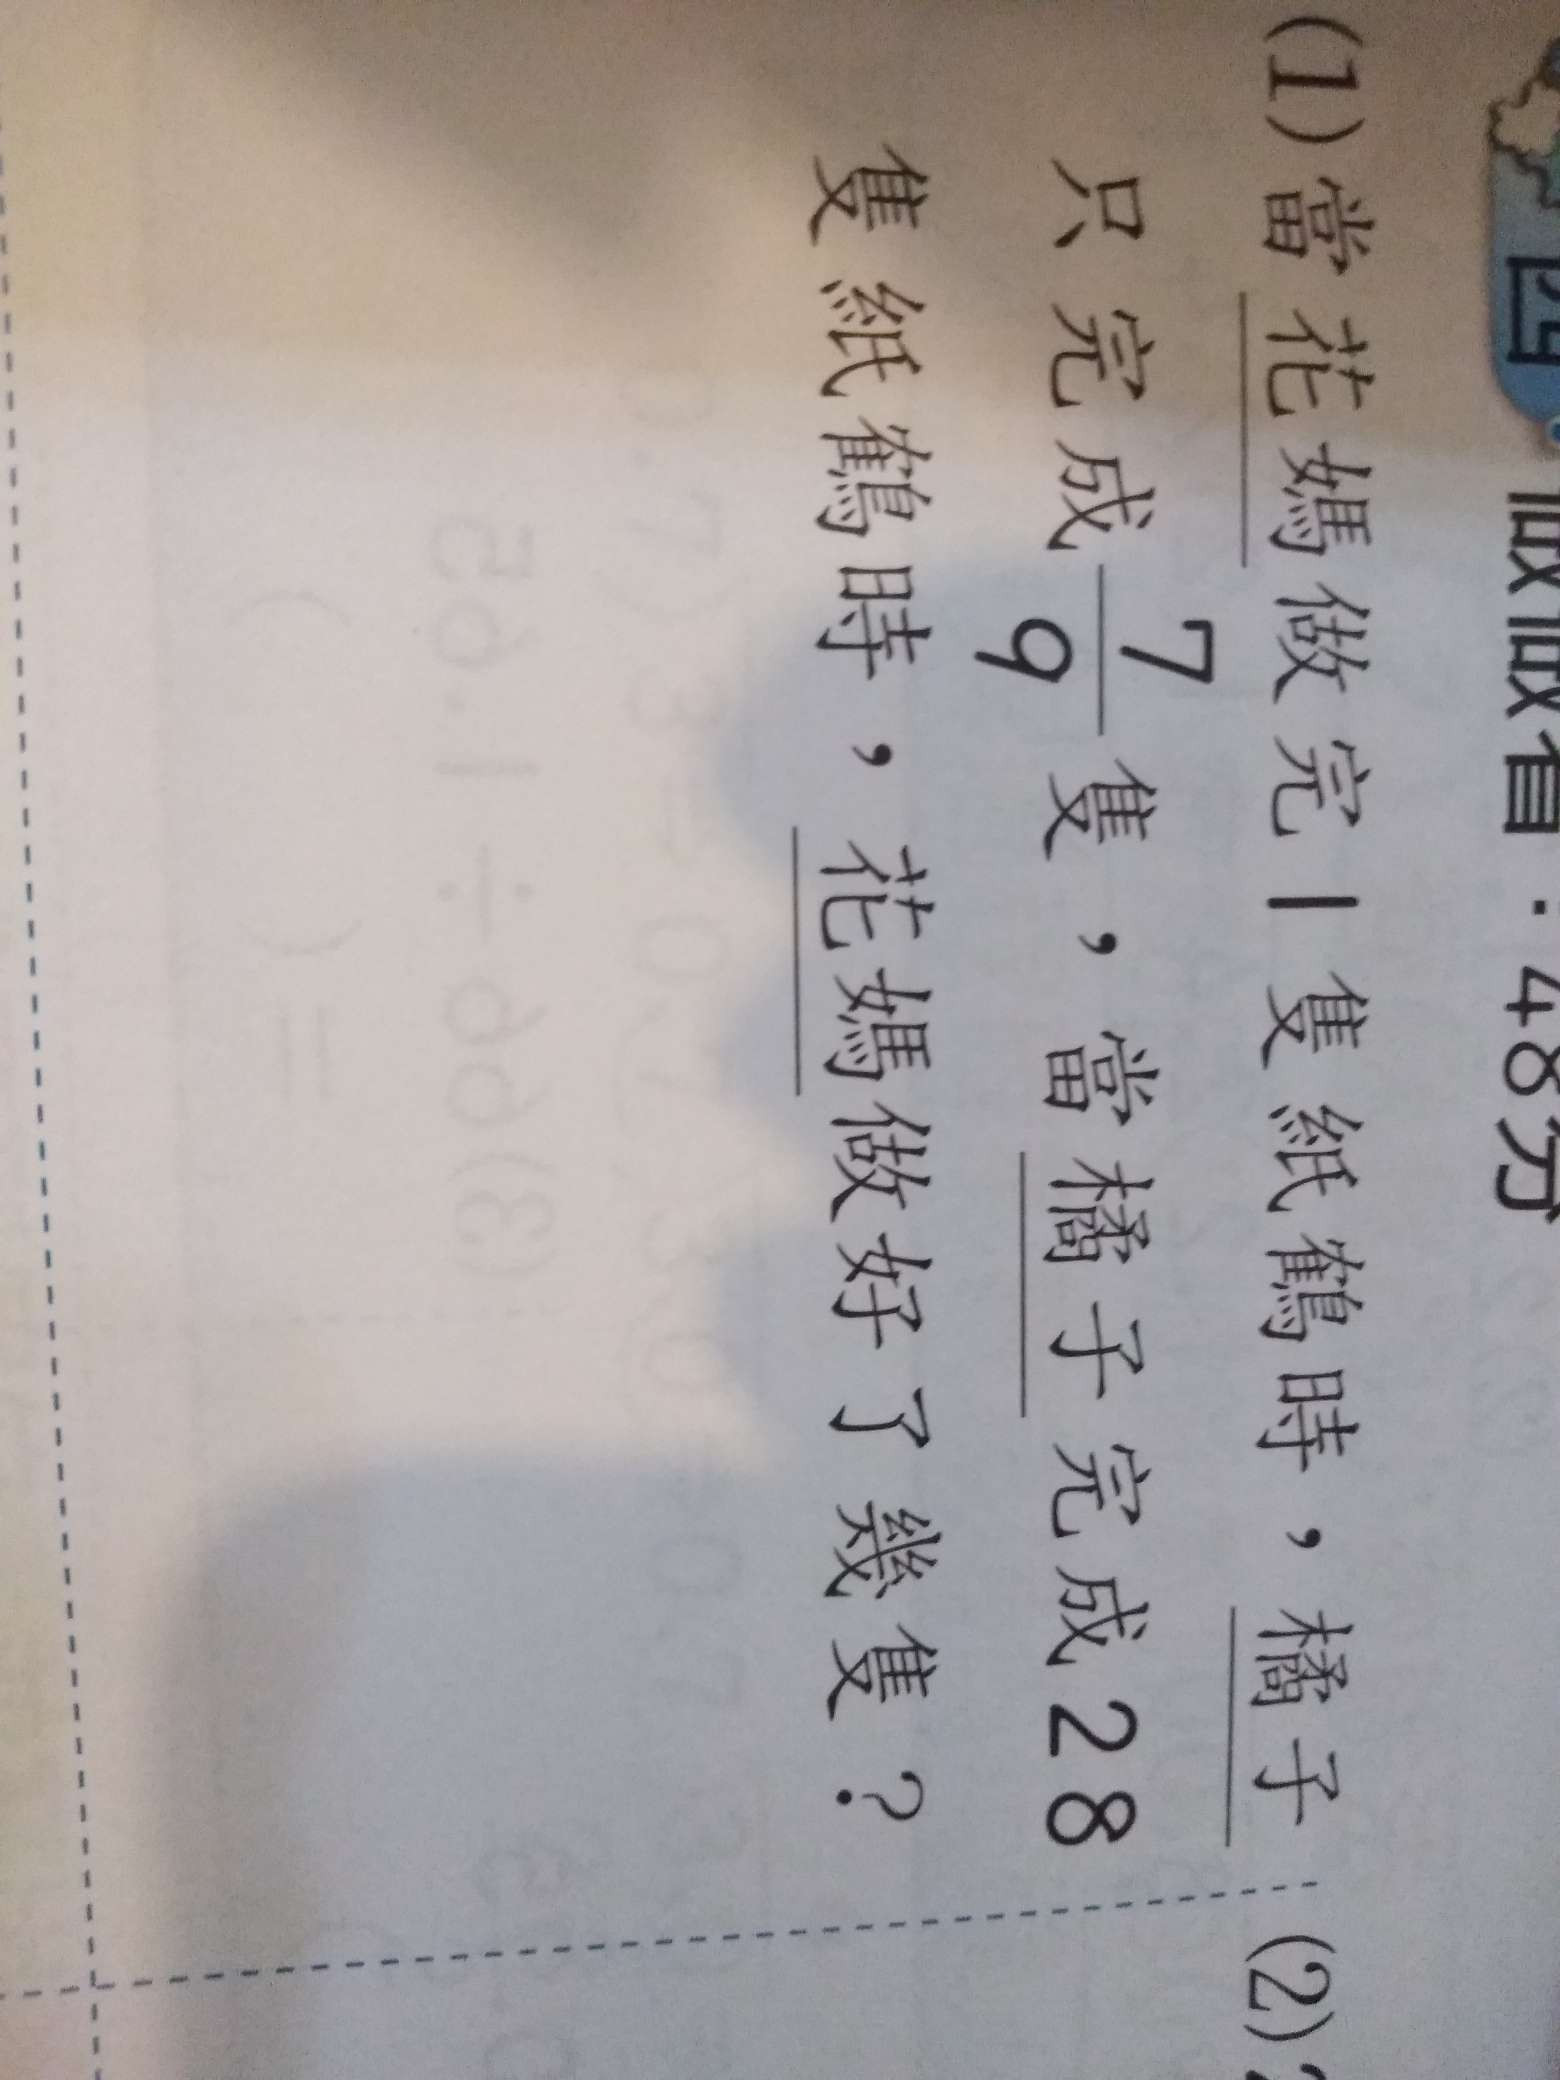 四、做做看：48分
(1)當花媽做完1隻紙鶴時，橘子
只完成7/9隻，當橘子完成28
隻紙鶴時，花媽做好了幾隻？
(2)